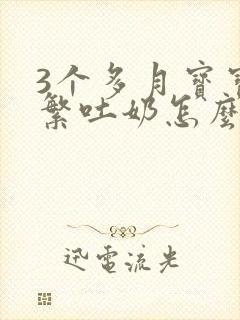 3个多月寶寶
繁吐奶怎麼
迅電流光